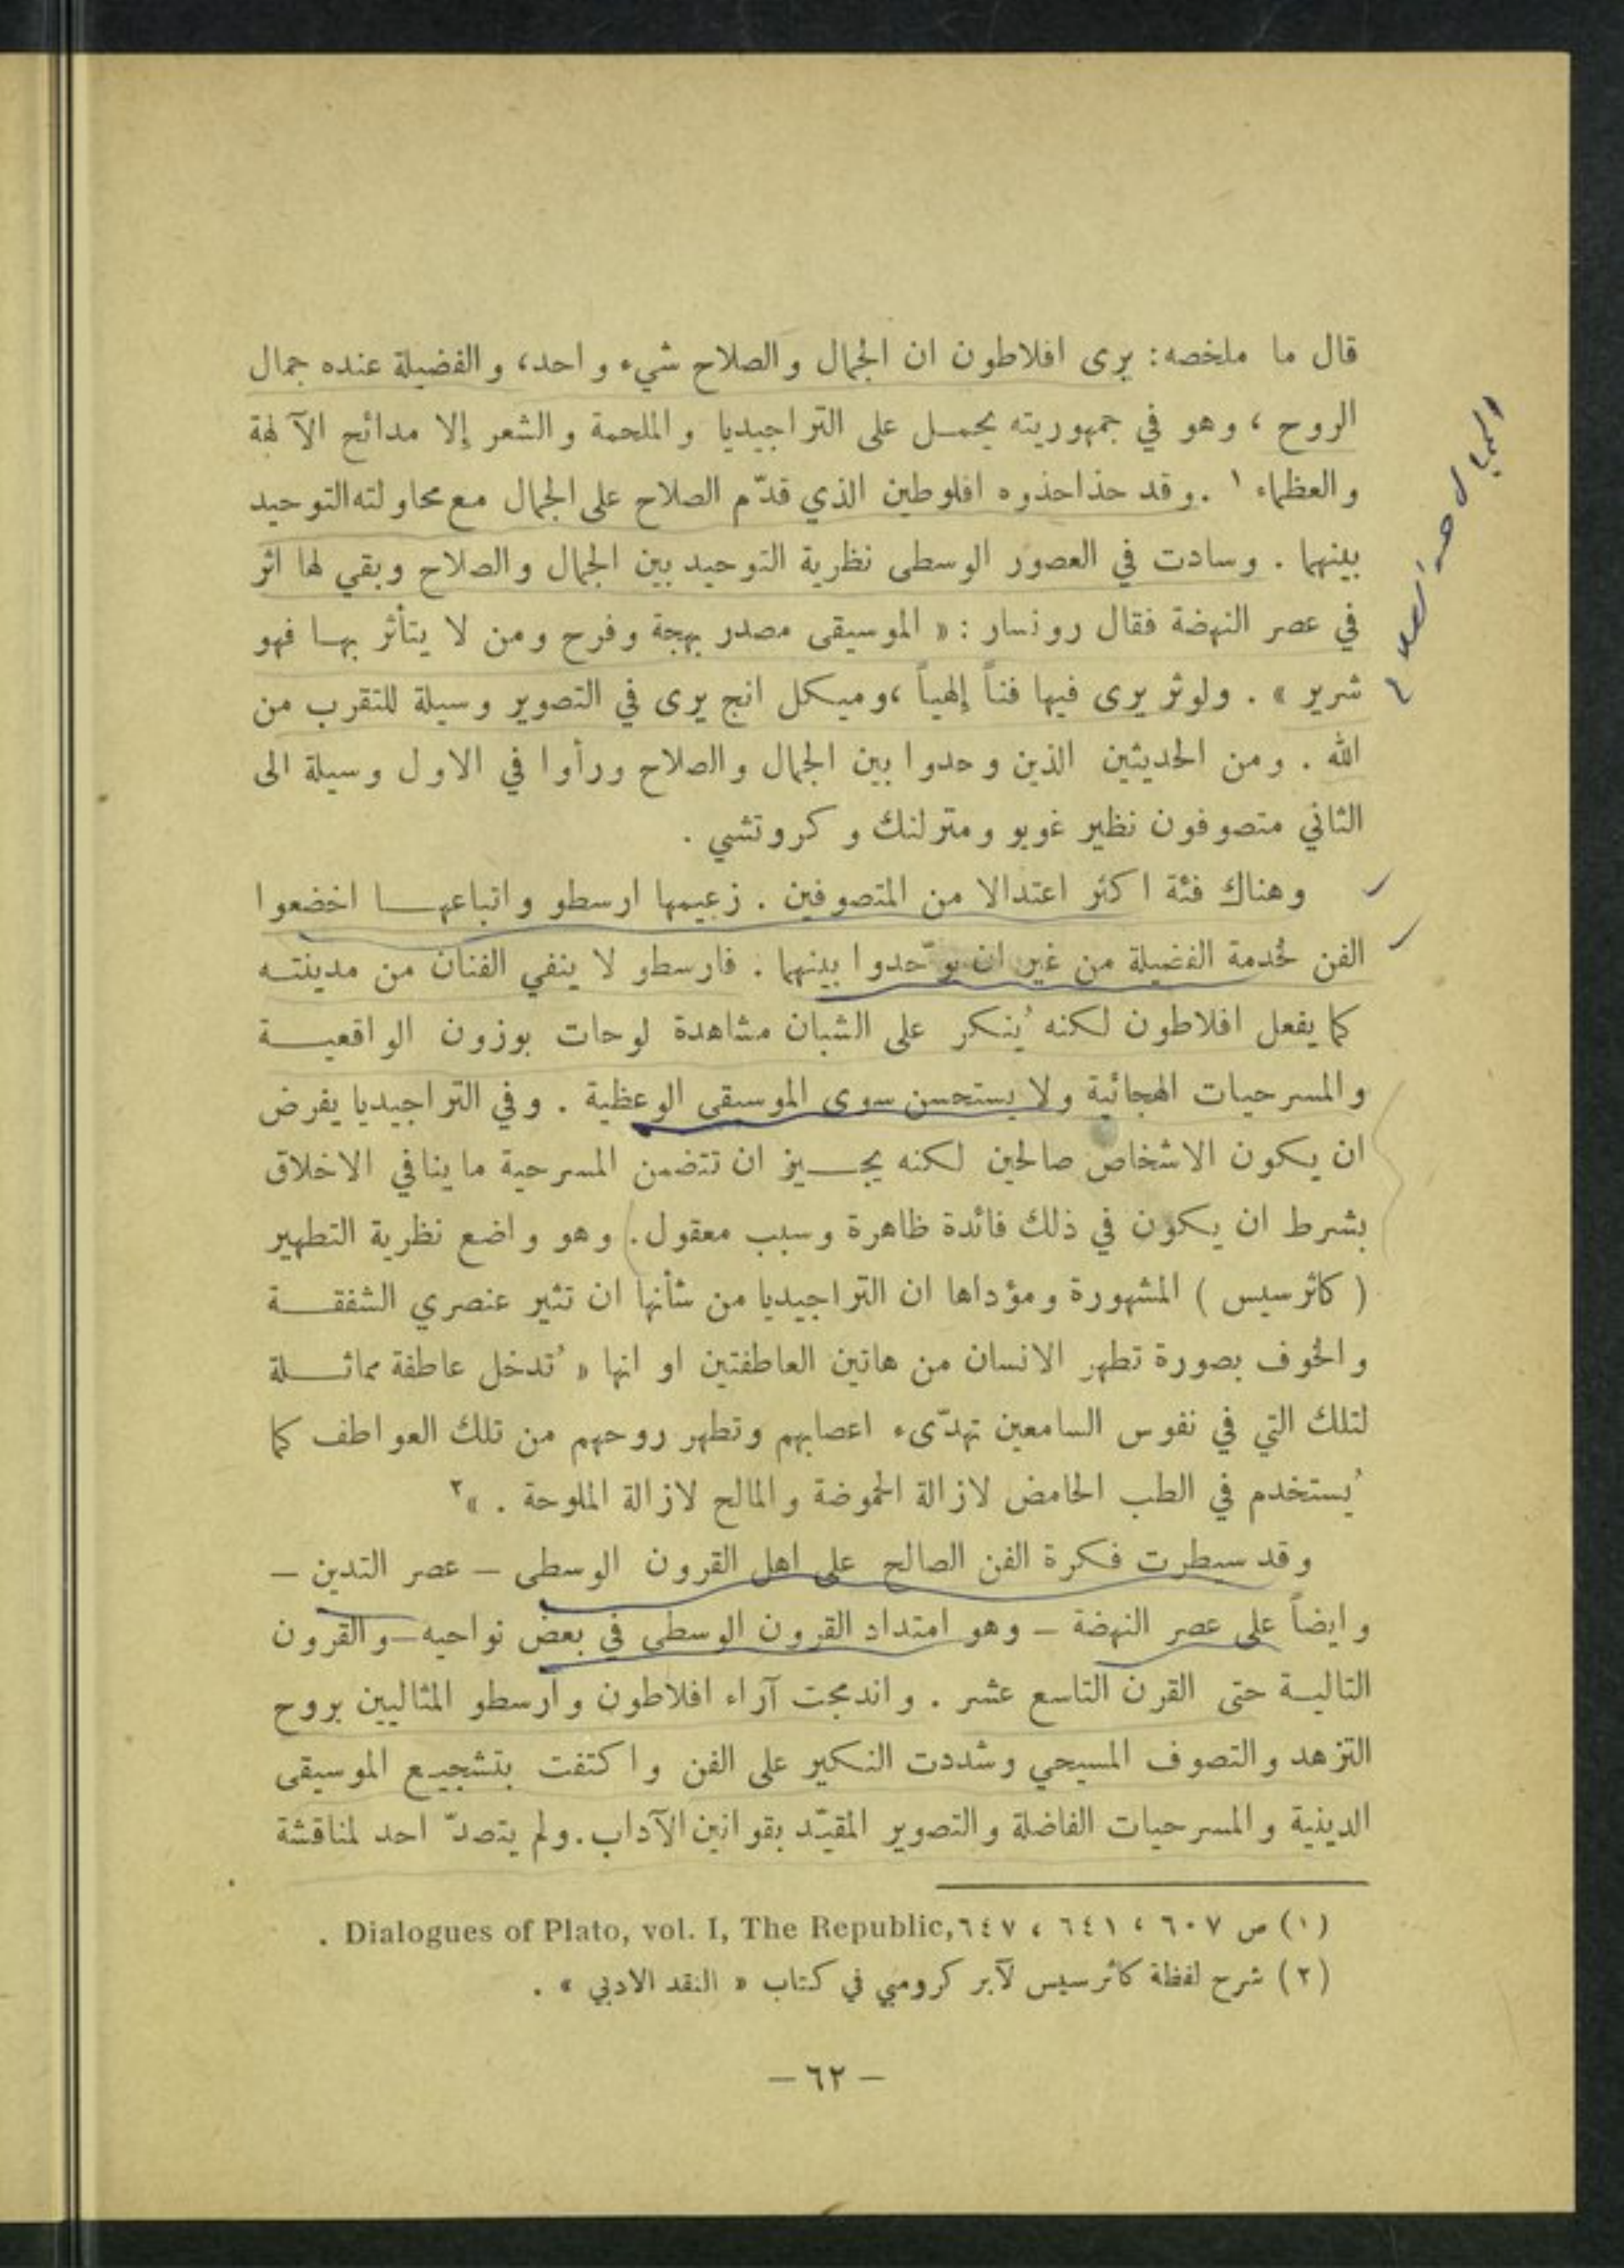 قال ما ملخصه: يرى افلاطون ان الجمال والصلاح شيء واحد، والفضيلة عنده جمال
الروح ، وهو في جمهوريته يحمـل على التراجيديا والملحمة والشعر إلا مدائح الآلهة
والعظماء ١ . وقد حذا حذوه افلوطين الذي قدّم الصلاح على الجمال مع محاولته التوحيد
بينهما . وسادت في العصور الوسطى نظرية التوحيد بين الجمال والصلاح وبقي لها اثر
في عصر النهضة فقال رونسار : « الموسيقى مصدر بهجة وفرح ومن لا يتأثر بهـا فهو
شرير » . ولوثر يرى فيها فناً إلهياً ، وميكل انج يرى في التصوير وسيلة للتقرب من
الله . ومن الحديثين الذين وحدوا بين الجمال والصلاح ورأوا في الاول وسيلة الى
الثاني متصوفون نظير غويو ومترلنك وكروتشي .
وهناك فئة اكثر اعتدالا من المتصوفين . زعيمها ارسطو واتباعهـا اخضعوا
الفن لخدمة الفضيلة من غير ان يوّحدوا بينهما . فارسطو لا ينفي الفنان من مدينتـه
كما يفعل افلاطون لكنه يُنكر على الشبان مشاهدة لوحات بوزون الواقعيـة
والمسرحيات الهجائية ولا يستحسن سوى الموسيقى الوعظية . وفي التراجيديا يفرض
ان يكون الاشخاص صالحين لكنه يجـيز ان تتضمن المسرحية ما ينافي الاخلاق
بشرط ان يكون في ذلك فائدة ظاهرة وسبب معقول . وهو واضع نظرية التطهير
( كاثرسيس ) المشهورة ومؤداها ان التراجيديا من شأنها ان تثير عنصري الشفقـة
والخوف بصورة تطهر الانسان من هاتين العاطفتين او انها « تُدخل عاطفة مماثـلة
لتلك التي في نفوس السامعين تهدّىء اعصابهم وتطهر روحهم من تلك العواطف كما
يُستخدم في الطب الحامض لازالة الحموضة والمالح لازالة الملوحة . »٢
وقد سيطرت فكرة الفن الصالح على اهل القرون الوسطى – عصر التدين –
وايضاً على عصر النهضة – وهو امتداد القرون الوسطى في بعض نواحيه – والقرون
التاليـة حتى القرن التاسع عشر . واندمجت آراء افلاطون وارسطو المثاليين بروح
التزهد والتصوف المسيحي وشددت النكير على الفن واكتفت بتشجيـع الموسيقى
الدينية والمسرحيات الفاضلة والتصوير المقيّد بقوانين الآداب. ولم يتصدّ احد لمناقشة
(١) ص ٦٠٧ ، ٦٤١ ، ٦٤٧ Dialogues of Plato, vol. I, The Republic, .
(٢) شرح لفظة كاثرسيس لآبر كرومبي في كتاب « النقد الادبي » .
– ٦٢ –